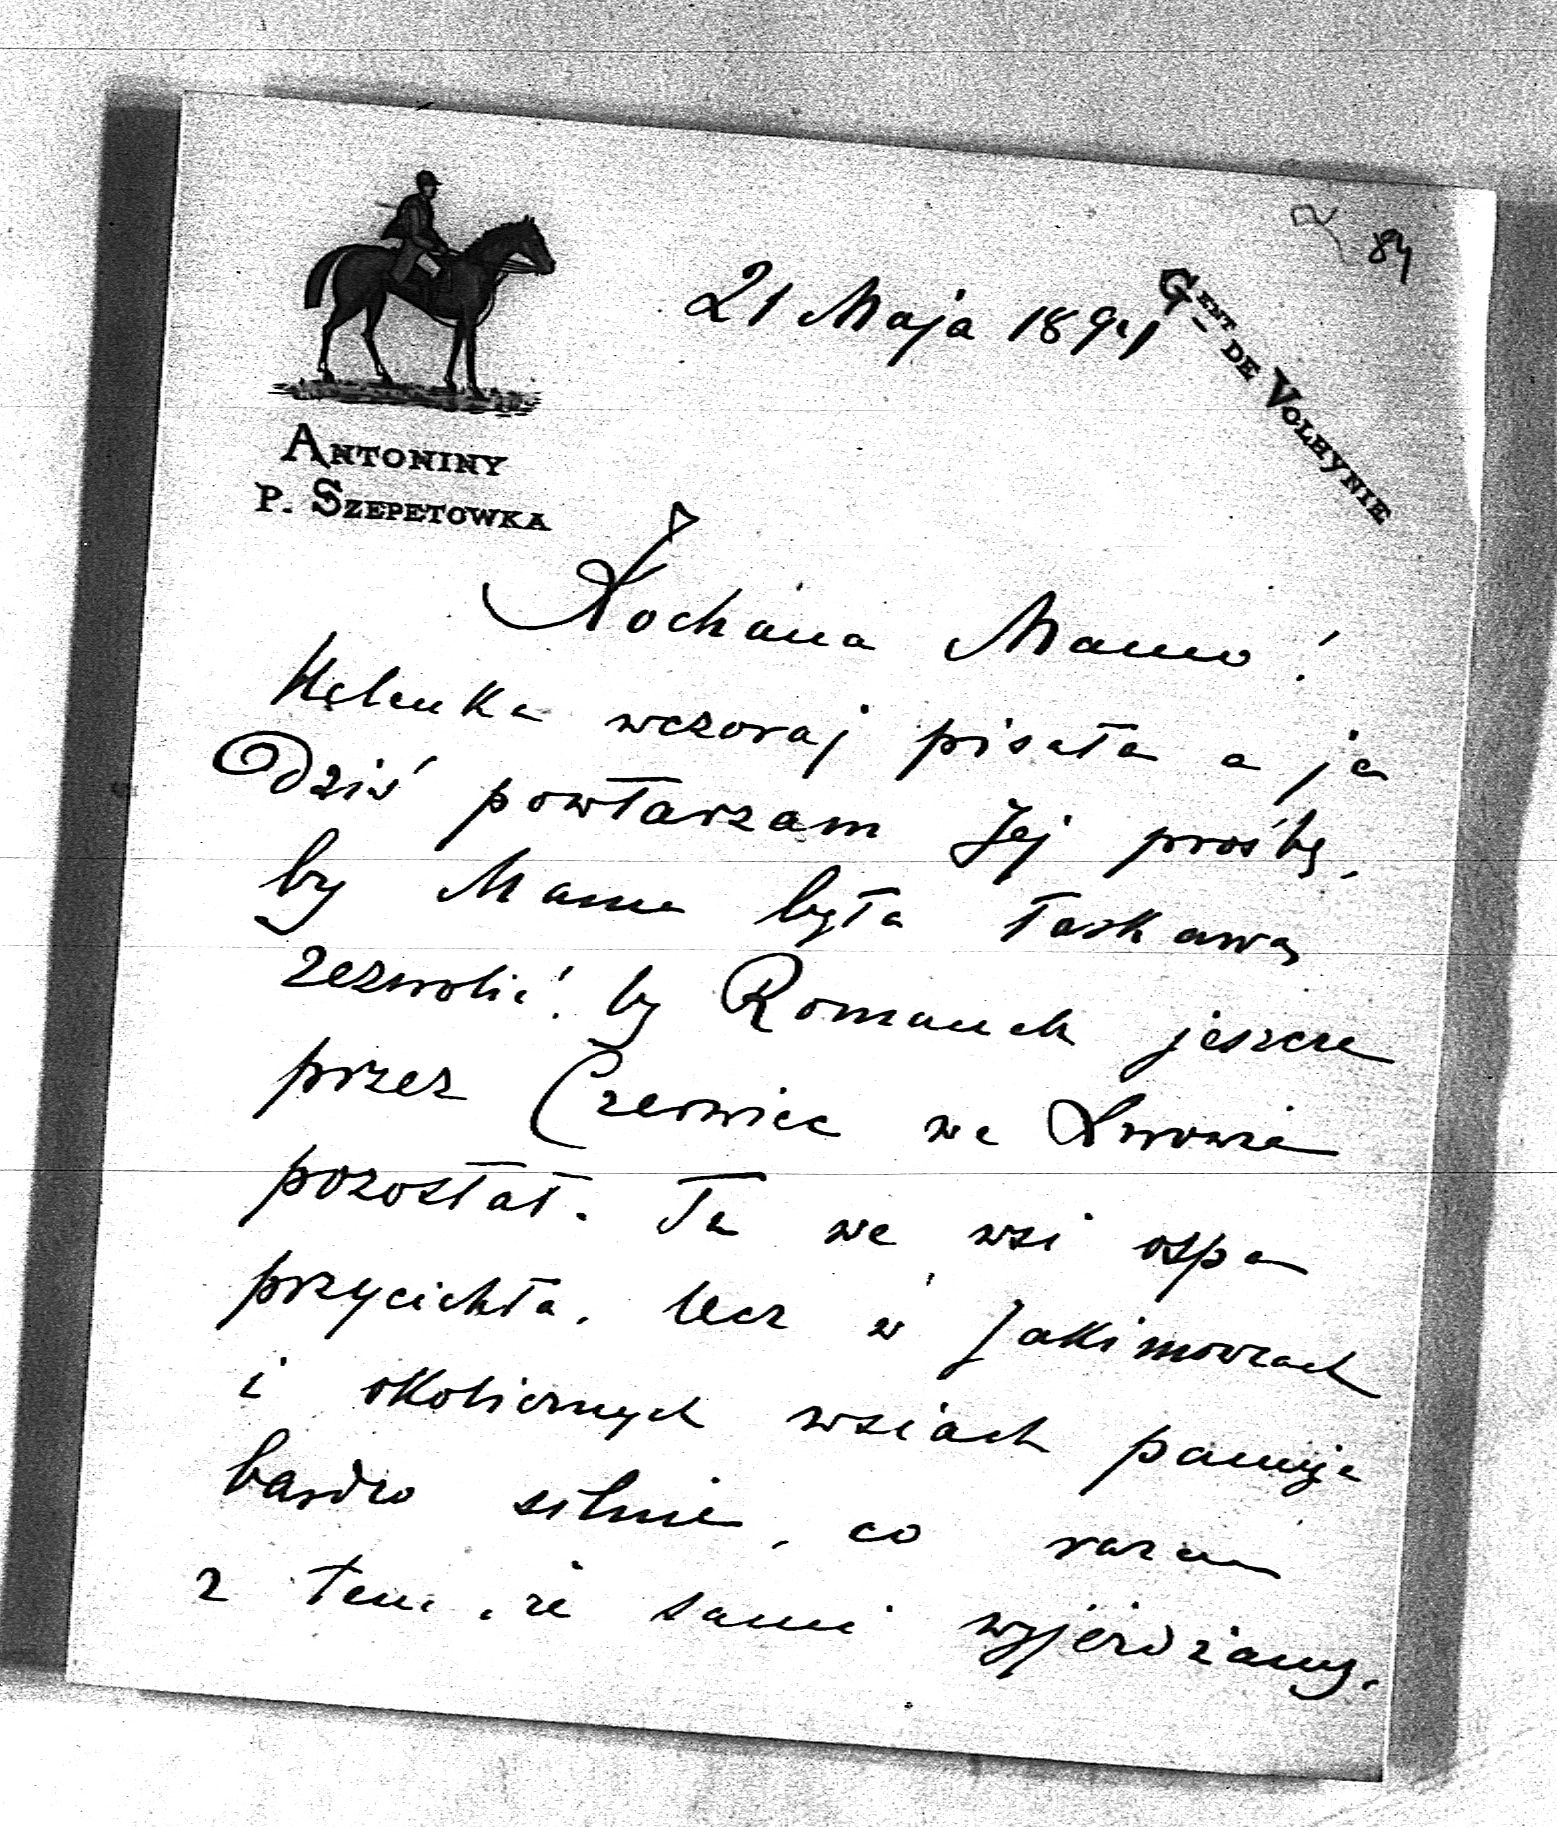 84
21 Maja 1894
GENT DE VOLHYNIE
ANTONINY
P. SZEPETOWKA
Kochana Mamo!
Helenka wczoraj pisała a ja
Dziś powtarzam Jej prośbę,
by Mama była łaskawą
zezwolić, by Romanek jeszcze
przez Czerwiec we Lwowie
pozostał. Tu we wsi ospa
przycichła, lecz w Jakimowcach
i okolicznych wsiach panuje
bardzo silnie, co razem
z tem, że sami wyjeżdżamy,